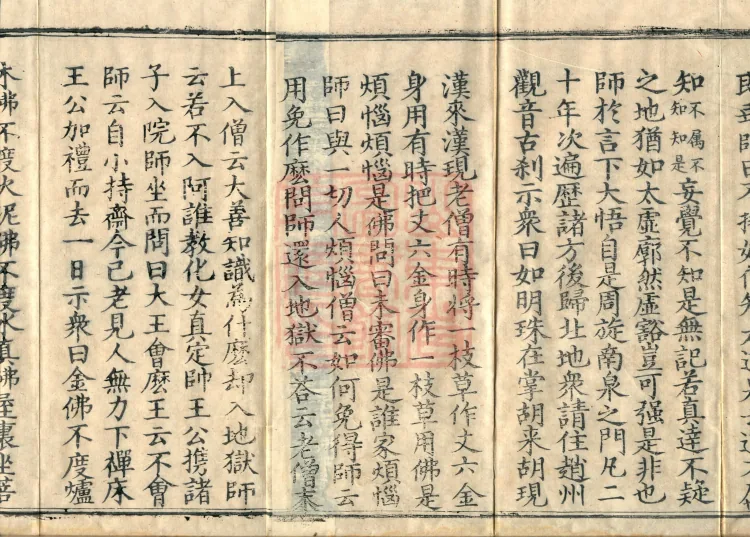 知不属不知知是妄覺不知是無記若真達不疑
之地猶如太虛廓然虛豁豈可强是非也
師於言下大悟自是周旋南泉之門凡二
十年次遍歷諸方後歸北地衆請住趙州
觀音古刹示衆曰如明珠在掌胡来胡現
漢來漢現老僧有時将一枝草作丈六金
身用有時把丈六金身作一枝草用佛是
煩惱煩惱是佛問曰未審佛是誰家煩惱
師曰與一切人煩惱僧云如何免得師云
用免作麽問師還入地獄不荅云老僧末
上入僧云大善知識爲什麽却入地獄師
云若不入阿誰教化女真定師王公携諸
子入院師坐而問曰大王會麽王云不會
師云自小持齋今已老見人無力下禪床
王公加禮而去一日示衆曰金佛不度爐
木佛不度火泥佛不度水真佛屋裏坐菩